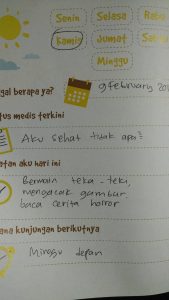 Senin Selasa Rabu
Kamis Jumat
Minggu
gal berapa ya?
9 february
tus medis terkini
Aku sehat tidak apa²
atan aku hari ini
Bermain teka-teki,
mengacak gambar,
baca cerita horror
ana kunjungan berikutnya
Minggu depan